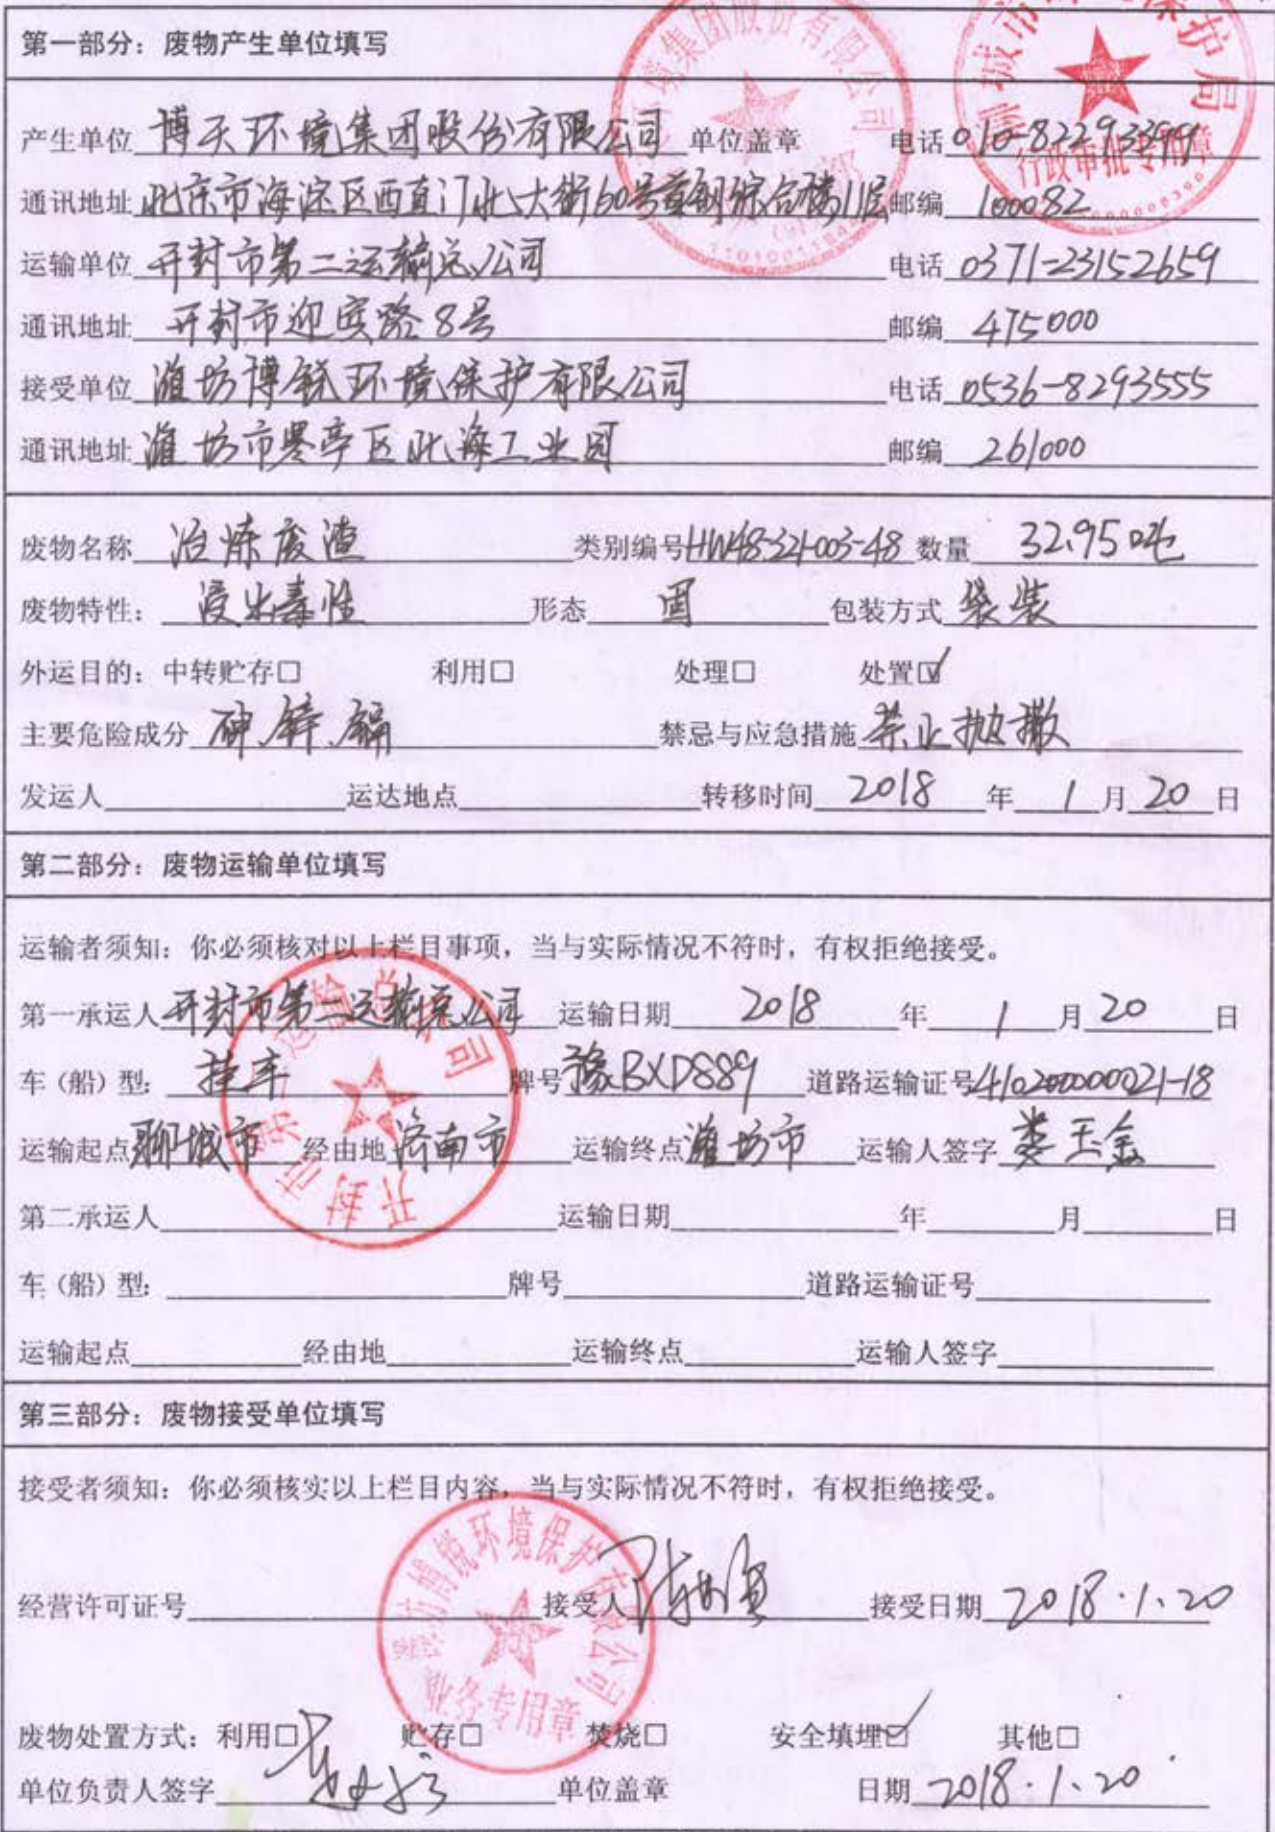 第一部分：废物产生单位填写
产生单位 博天环境集团股份有限公司 单位盖章 电话 010-82293399
通讯地址 北京市海淀区西直门北大街60号首钢综合楼11层 邮编 100082
运输单位 开封市第二运输总公司 电话 0371-23152659
通讯地址 开封市迎宾路8号 邮编 475000
接受单位 潍坊博锐环境保护有限公司 电话 0536-8293555
通讯地址 潍坊市寒亭区北海工业园 邮编 261000
废物名称 冶炼废渣 类别编号 HW48-321-003-48 数量 32.95吨
废物特性： 浸出毒性 形态 固 包装方式 袋装
外运目的：中转贮存□ 利用□ 处理□ 处置☑
主要危险成分 砷.锌.镉 禁忌与应急措施 禁止抛撒
发运人 运达地点 转移时间 2018 年 1 月 20 日
第二部分：废物运输单位填写
运输者须知：你必须核对以上栏目事项，当与实际情况不符时，有权拒绝接受。
第一承运人 开封市第二运输总公司 运输日期 2018 年 1 月 20 日
车（船）型： 挂车 牌号 豫BXD889 道路运输证号 410200000021-18
运输起点 聊城市 经由地 济南市 运输终点 潍坊市 运输人签字 娄玉金
第二承运人 运输日期 年 月 日
车（船）型： 牌号 道路运输证号
运输起点 经由地 运输终点 运输人签字
第三部分：废物接受单位填写
接受者须知：你必须核实以上栏目内容，当与实际情况不符时，有权拒绝接受。
经营许可证号 接受人 接受日期 2018.1.20
废物处置方式：利用□ 贮存□ 焚烧□ 安全填埋☑ 其他□
单位负责人签字 单位盖章 日期 2018.1.20
境集团股份有限公司
保护局
行政审批专用章
开封市第二运输总公司
潍坊博锐环境保护有限公司
业务专用章